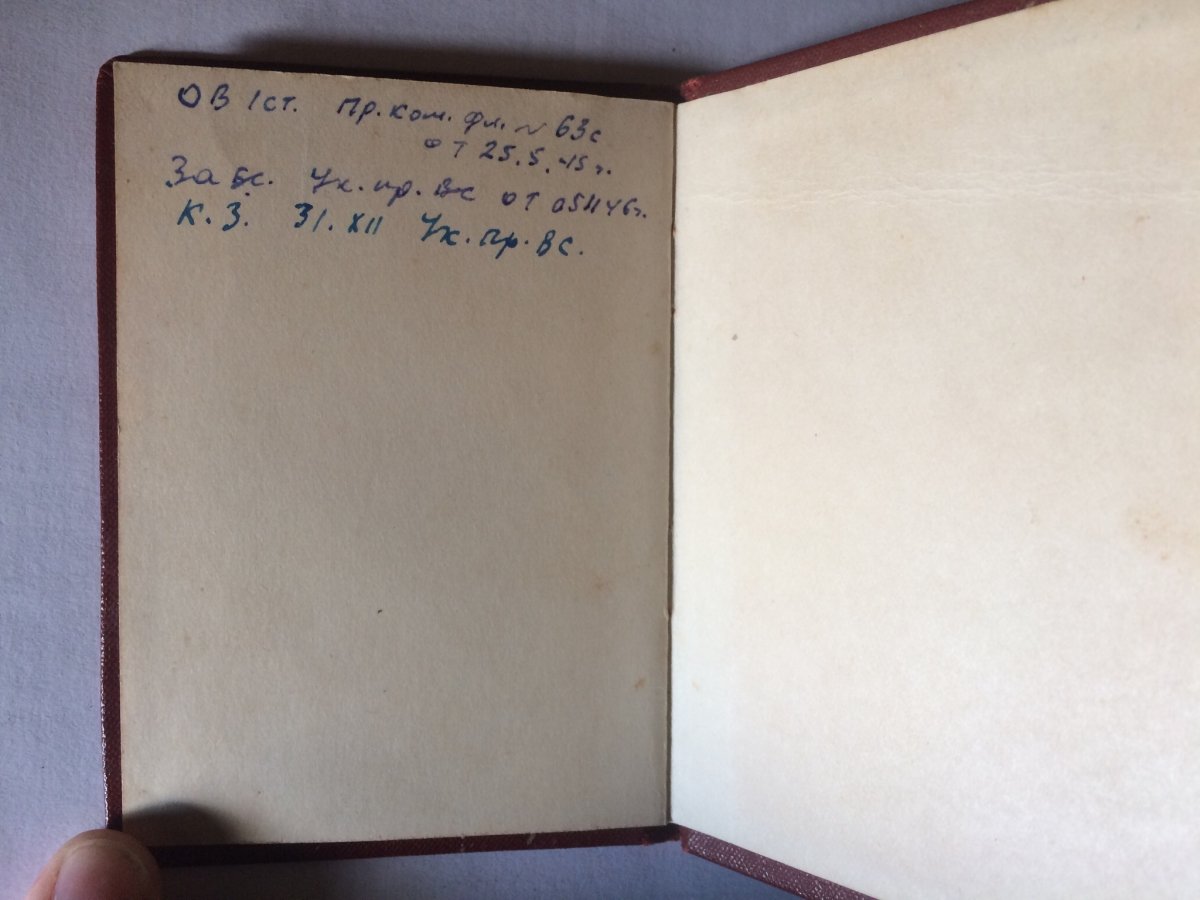 ОВ 1ст. Пр. ком. фл. № 63с
от 25.5.45г.
За бс. Ук. пр. Вс от 051146г.
К. З. 31. XII Ук. пр. ВС.